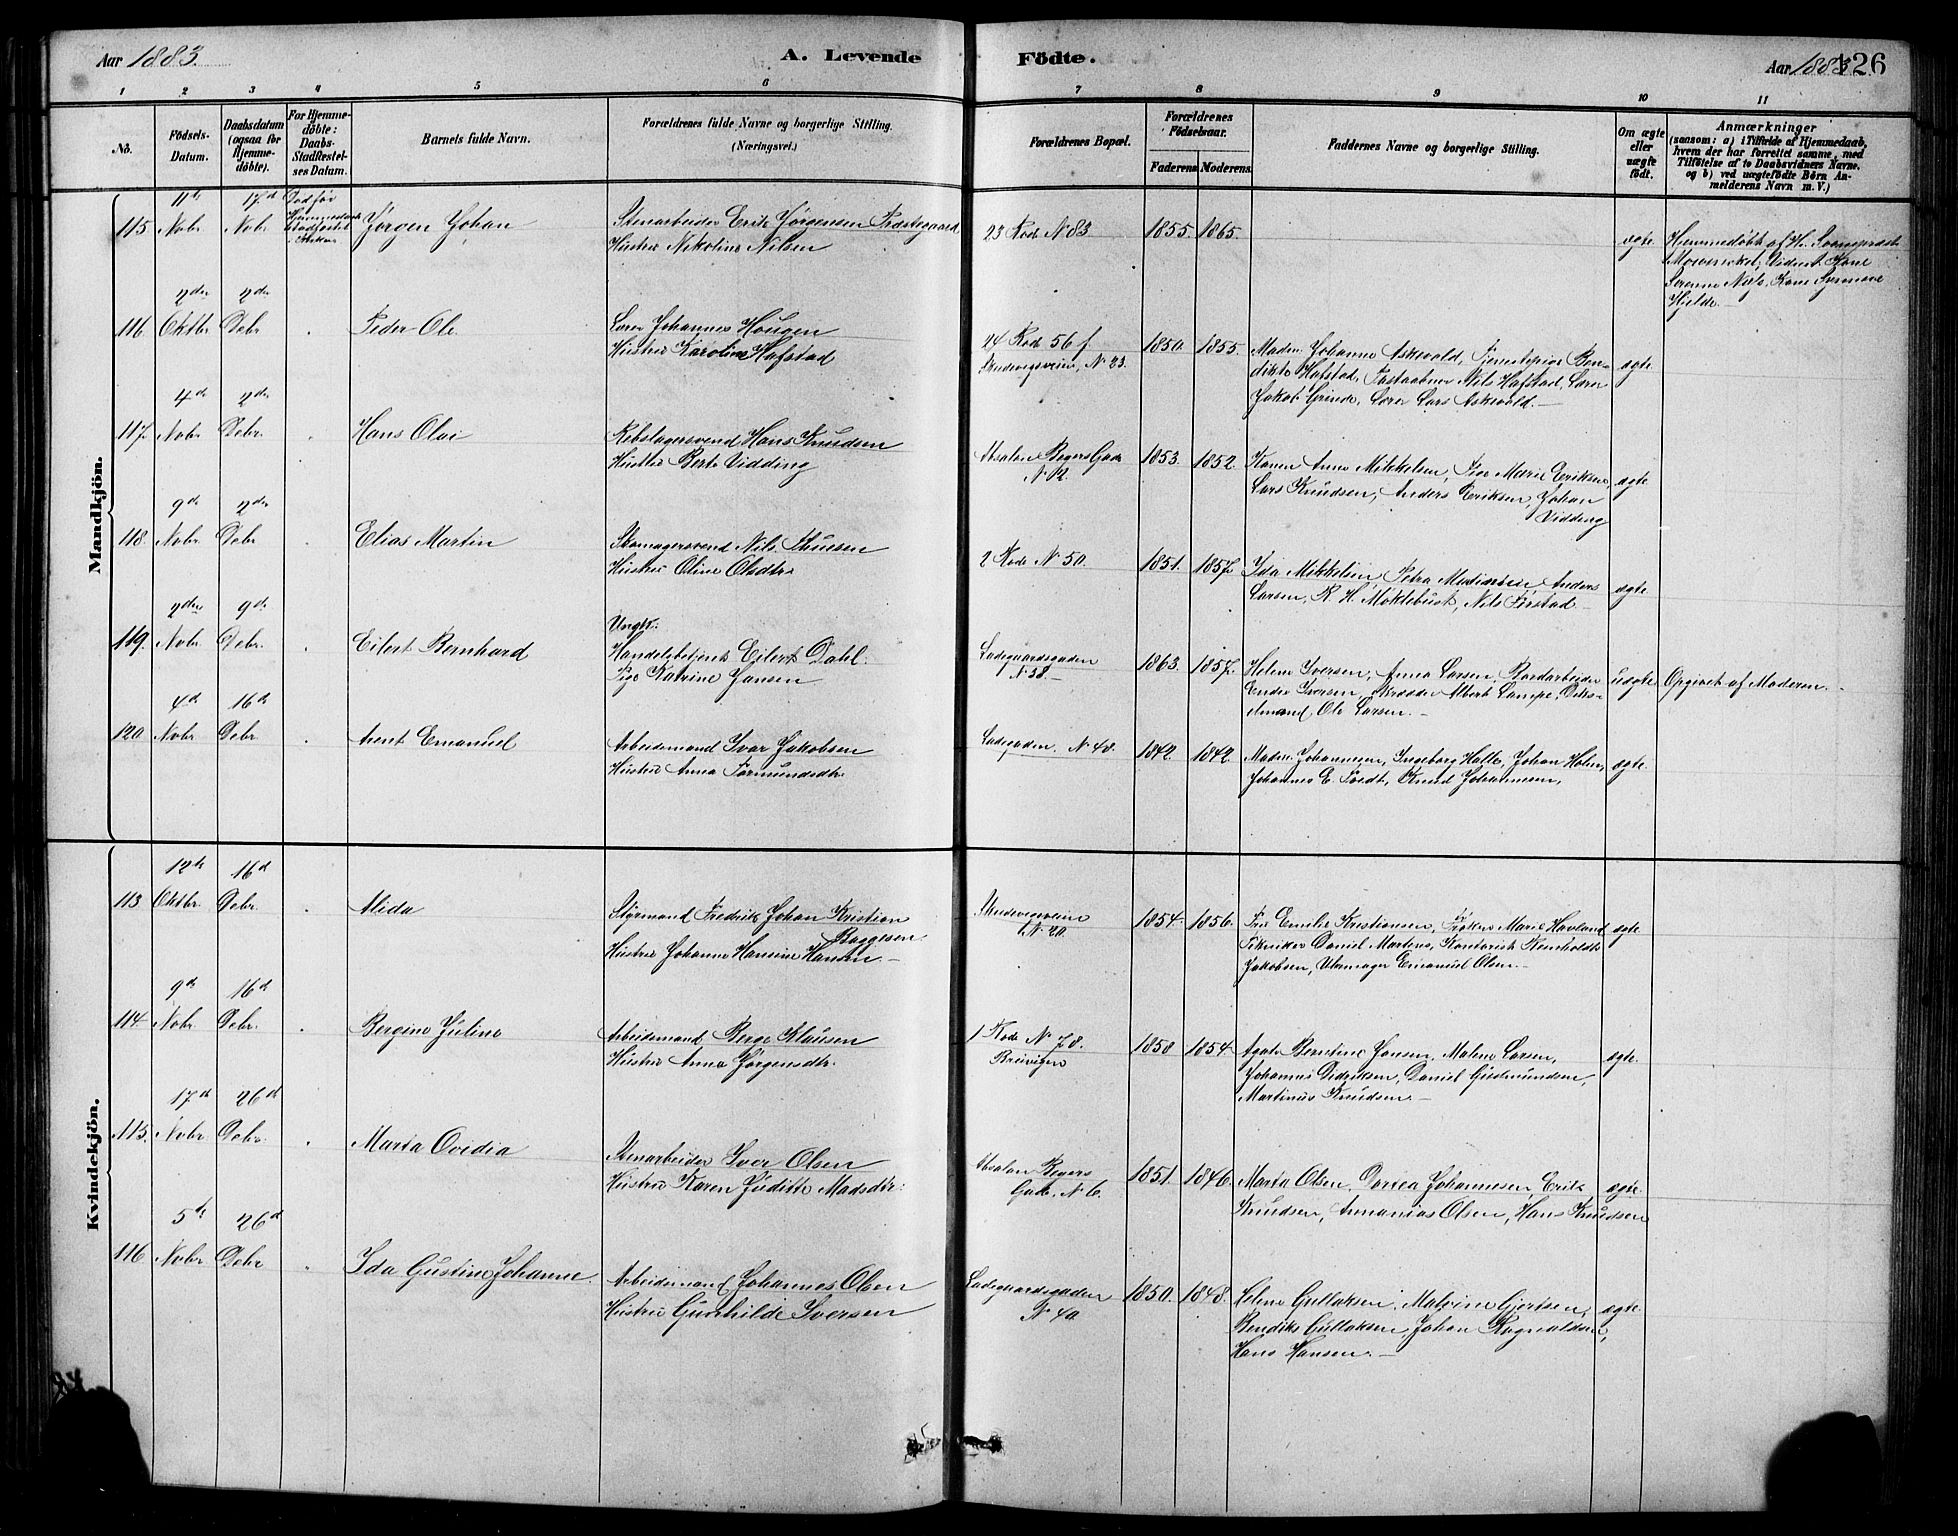 Aar 1883.
A. Levende Födte.
Aar 1883
126
1 2 3 4 5 6 7 8 9 10 11
No.
Födsels-Datum.
Daabsdatum (ogsaa for Hjemmedöbte).
For Hjemmedöbte: Daabs-Stadfæstelses Datum.
Barnets fulde Navn.
Forældrenes fulde Navne og borgerlige Stilling. (Næringsvei.)
Forældrenes Bopæl.
Forældrenes Födselsaar.
Faderens Moderens.
Faddernes Navne og borgerlige Stilling.
Om ægte eller uægte födt.
Anmærkninger
(saasom: a) i Tilfælde af Hjemmedaab, hvem der har forrettet samme, med Tilföielse af to Daabsvidners Navne. og b) ved uægtefödte Börn Anmelderens Navn m. V.)
Mandkjön.
115 11te Nobr 17de Nobr
Jörgen Johan
Stenarbeider Erik Jørgensen
Hustru Nikoline Nilsen
23 Rode N 83
1855. 1865.
ægte
Hjemmedøbt af Hr.
116 2den Oktbr 2den Debr
Peder Ole
Lærer Johannes Hougen
Hustru Karoline Hafstad
24 Rod 56 f
N 23.
1850 1855.
Madm. Johanne Askevold, Tjenestepige Ben-
dikte Hafstad, Nils Hafstad, Lærer
Jakob Grinde, Lærer Lars Askevold.
ægte
117. 4de Nobr 2den Debr.
Hans Olai
Rebslagersvend Hans Knudsen
Hustru Berte Vidding
Absalon Beyers Gade
N 12.
1853. 1852.
Konen Anna Mikkelsen, Pige Marie Eriksen,
Lars Knudsen, Anders Eriksen, Johan
Vidding
ægte
118. 9de Nobr. 2den Debr
Elias Martin
Skomagersvend Nils
Hustru Oline Olsdtr
2 Rode N 50.
1851. 1857.
Ida Mikkelsen, Petra Martinsen, Anders
Larsen, R. H. Møklebust, Nils
ægte
119. 2den Nobr. 9de Debr.
Eilert Bernhard
Ungk:
Handelsbetjent Eilert Dahl.
Pige Katrine Jansen
Ladegaardsgaden
N 38.
1863. 1857.
Helene Iversen, Anna Larsen, Bordarbeider
Endre Iversen, Skrædder Albert Lampe,
Ole Larsen.
uægte
Opgivet af Moderen.
120 4de Nobr 16de Debr
Arent Emanuel
Arbeidsmand Ivar Jakobsen
Hustru Anna
N 48.
1842. 1842.
Madm. Johannesen, Ingeborg Halle, Johan Holm,
Johannes E. Knud Johannesen,
ægte.
Kvindekjön.
113 12te Oktbr. 16de Debr.
Alida
Styrmand Fredrik Johan Kristian
Baggesen
Hustru Johanne Hansine Hansen
N 20
1854. 1856.
Fru Emilie Kristiansen, Frøken Marie Havland
Daniel Martens, Kontorist Reinholdt
Jakobsen, Uhrmager Emanuel Olsen.
ægte
114 9de Nobr. 16de Debr.
Bergine Juline
Arbeidsmand Berge Klausen
Hustru Anna Jørgensdtr.
1 Rode N 78.
1858 1854.
Agate Berntine Jansen, Malene Larsen,
Johannes Didriksen, Daniel Gudmundsen,
Martinus Knudsen.
ægte.
115. 17de Nobr 26de Debr.
Marta Ovidia
Stenarbeider Iver Olsen
Hustru Karen Juditte Madsdtr.
Absalon Beyers
Gade, N 6.
1851. 1846.
Marta Olsen, Dortea Johannesen, Erik
Knudsen, Annanias Olsen, Hans Knudsen
ægte.
116 5te Nobr 26de Debr
Ida Gustine Johanne.
Arbeidsmand Johannes Olsen
Hustru Gunhilde Iversen
Ladegaardsgaden
N 40
1850. 1848.
Helene Gullaksen, Malvine Gjertsen,
Bendiks Gullaksen, Johan Ragnvaldsen,
Hans Hansen.
ægte